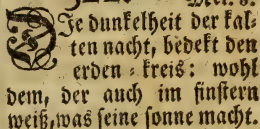 DJe dunkelheit der kal-
ten nacht, bedekt den
erden-kreis: wohl
dem, der auch im finstern
weiß, was seine sonne macht.